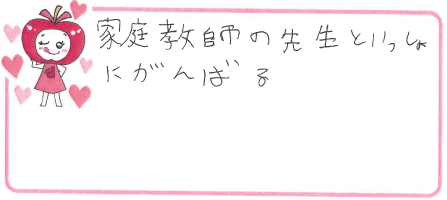 家庭教師の先生といっしょ
にがんばる